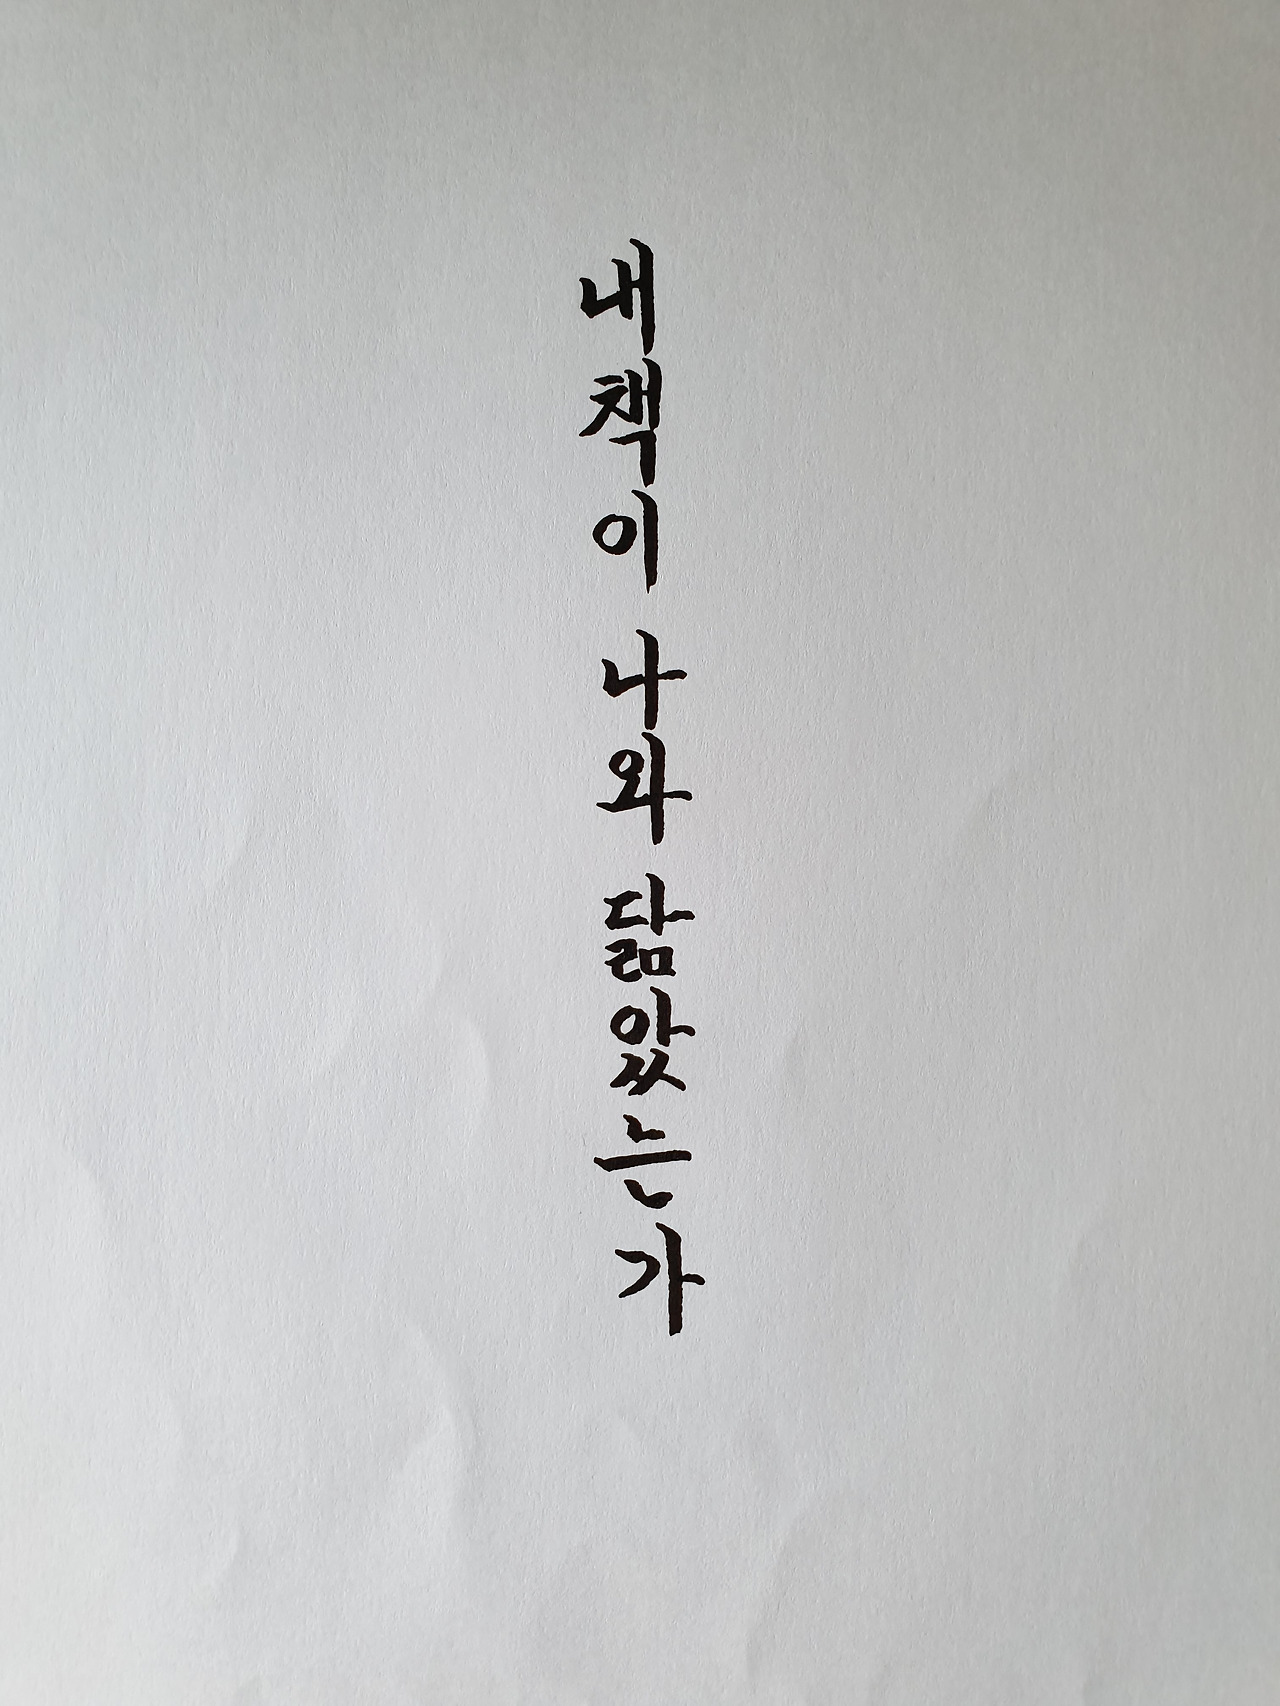 내책이 나와 닮았는가